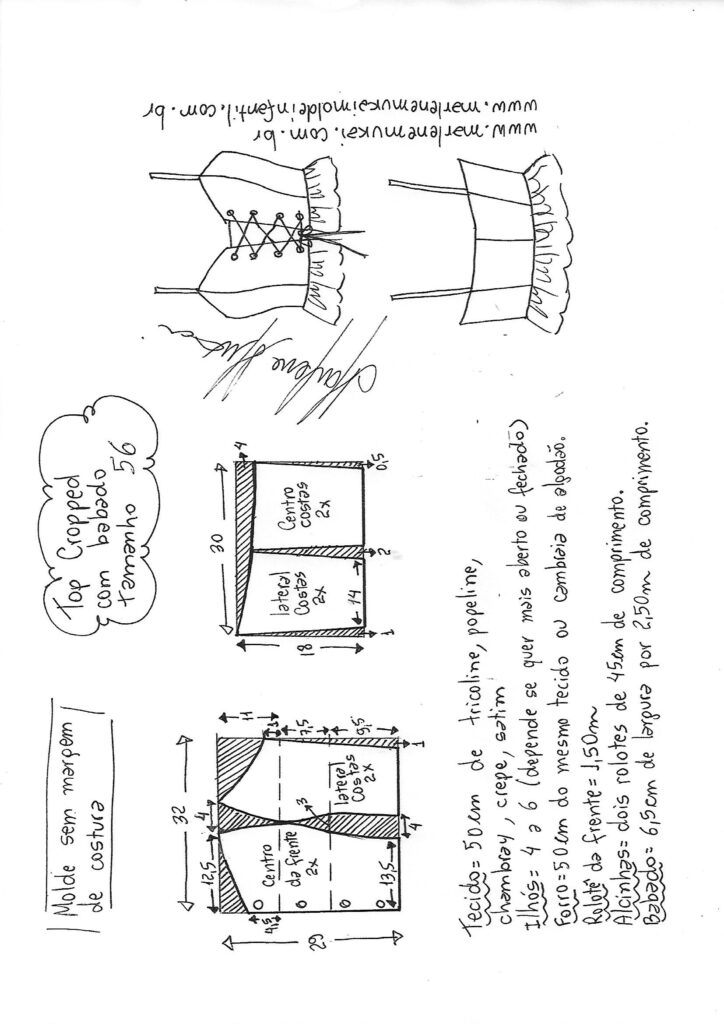 www.marlenemukai.com.br
www.marlenemukaimoldeinfantil.com.br
Marlene Mukai
Molde sem margem
de costura
Top Cropped
com babado
tamanho 56
32
12,5
4
11
4,5
29
Centro
da frente
2x
3
lateral
Costas
2x
7,5
9,5
13,5
4
1
30
4
18
lateral
Costas
2x
Centro
costas
2x
14
1
2
0,5
Tecido= 50cm de tricoline, popeline,
chambray, crepe, satim
Ilhós= 4 a 6 (depende se quer mais aberto ou fechado)
Forro= 50cm do mesmo tecido ou cambraia de algodão.
Rolotê da frente= 1,50m
Alcinhas= dois rolotes de 45cm de comprimento.
Babado= 6,5cm de largura por 2,50m de comprimento.